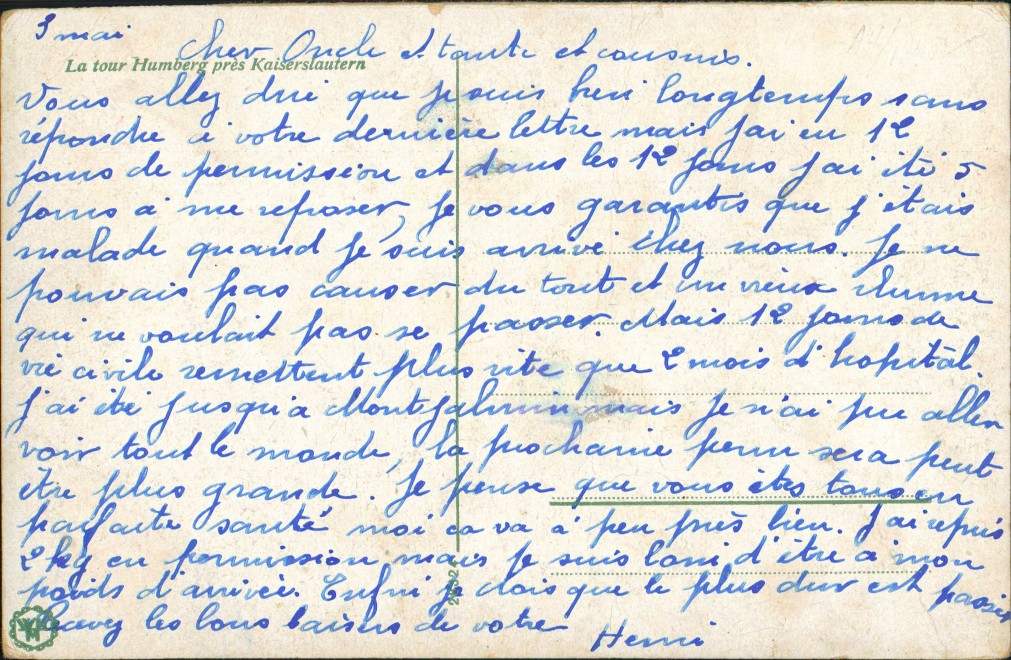 3 mai
Cher Oncle et tante et cousins.
La tour Humberg près Kaiserslautern
Vous allez dire que je suis bien longtemps sans
répondre à votre dernière lettre mais j'ai eu 12
jours de permission et dans les 12 jours j'ai été 5
jours à me reposer, je vous garantis que j'étais
malade quand je suis arrivé chez nous. Je ne
pouvais pas causer du tout et un vieux rhume
qui ne voulait pas se passer. Mais 12 jours de
vie civile remettent plus vite que 2 mois d'hopital.
J'ai été jusqu'a mais je n'ai pu aller
voir tout le monde, la prochaine perm sera peut
être plus grande. Je pense que vous êtes tous en
parfaite santé moi ca va à peu près bien. J'ai repris
2 kg en permission mais je suis loin d'être à mon
poids d'arrivée. Enfin je crois que le plus dur est passé
Recevez les bons baisers de votre
Henri